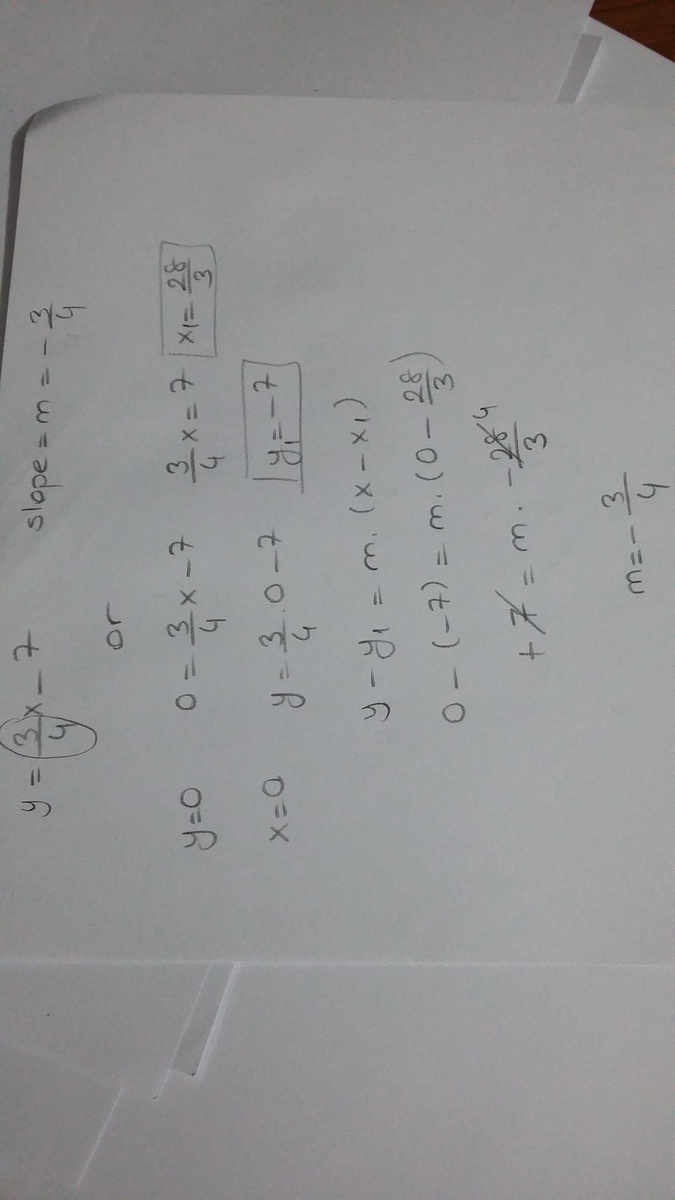 y = 3/4 x - 7 slope = m = - 3/4
or
y=0 0 = 3/4 x - 7 3/4 x = 7 x₁ = 28/3
x=0 y = 3/4 . 0 - 7 y₁ = -7
y - y₁ = m . (x - x₁)
0 - (-7) = m . (0 - 28/3)
+ 7 = m . - 28/3 4
m = - 3/4